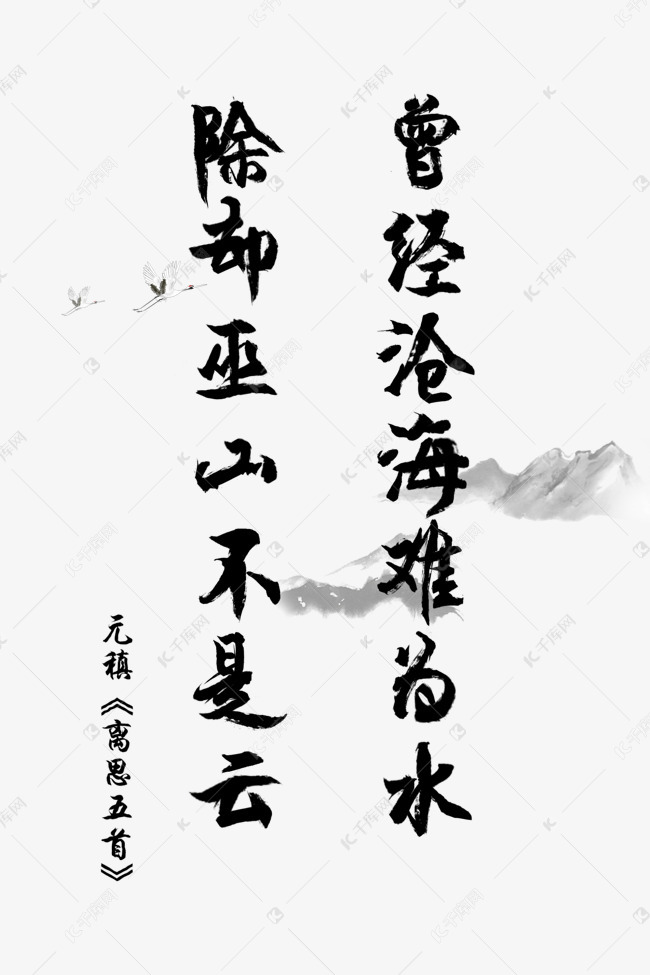 曾经沧海难为水
除却巫山不是云
元稹《离思五首》
千库网